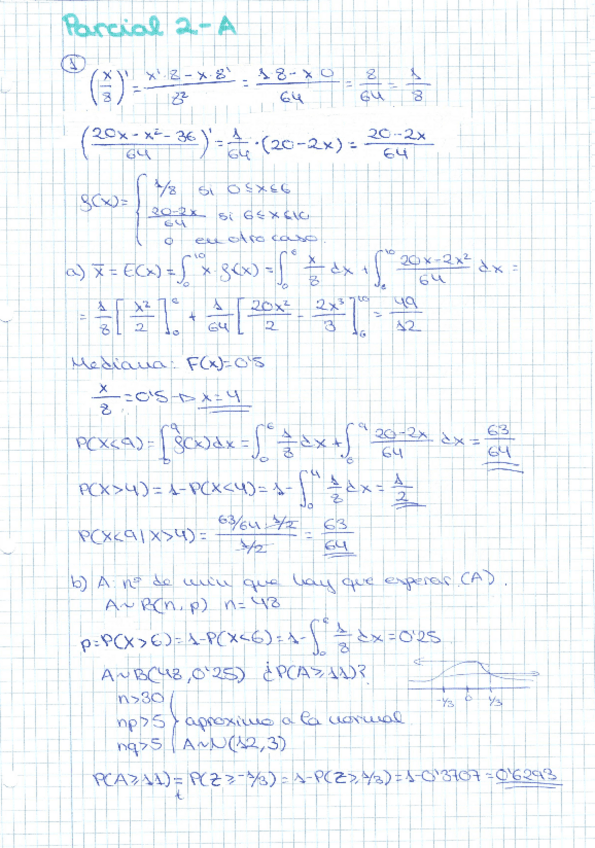 Parcial 2-A
1
(x/8)' = (x'·8 - x·8')/8² = (1·8 - x·0)/64 = 8/64 = 1/8
((20x - x² - 36)/64)' = 1/64 · (20 - 2x) = (20 - 2x)/64
f(x) = { 1/8 si 0≤x≤6
(20-2x)/64 si 6≤x≤10
0 en otro caso.
a) x̄ = E(x) = ∫₀¹⁰ x·f(x) = ∫₀⁶ x/8 dx + ∫₆¹⁰ (20x-2x²)/64 dx =
= 1/8 [x²/2]₀⁶ + 1/64 [20x²/2 - 2x³/3]₆¹⁰ = 49/12
Mediana: F(x)=0'5
x/8 = 0'5 → x = 4
P(X<9) = ∫₀⁹ f(x)dx = ∫₀⁶ 1/8 dx + ∫₆⁹ (20-2x)/64 dx = 63/64
P(X>4) = 1-P(X<4) = 1-∫₀⁴ 1/8 dx = 1/2
P(X<9|X>4) = (63/64 · 1/2)/(1/2) = 63/64
b) A nº de min que hay que esperar (A).
A~B(n,p) n=48
p=P(X>6)=1-P(X<6)=1-∫₀⁶ 1/8 dx = 0'25
A~B(48,0'25) ¿P(A≥11)?
-1/3 0 1/3
n>30
np>5 } aproximo a la normal
nq>5 A~N(12,3)
P(A≥11) = P(Z≥-1/3) = 1-P(Z≥1/3) = 1-0'3707 = 0'6293
t